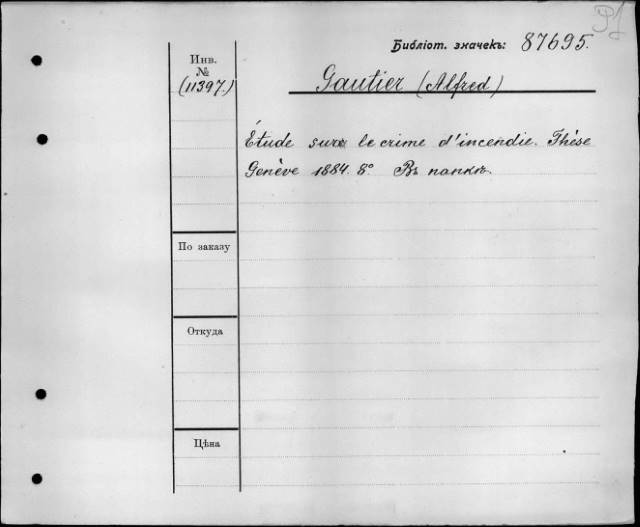 Библіот. значекъ: 87695.
Инв.
№
(11397.)
Gautier (Alfred)
Étude sur le crime d'incendie. Thèse
Genève 1884. 8° Въ папкѣ.
По заказу
Откуда
Цѣна